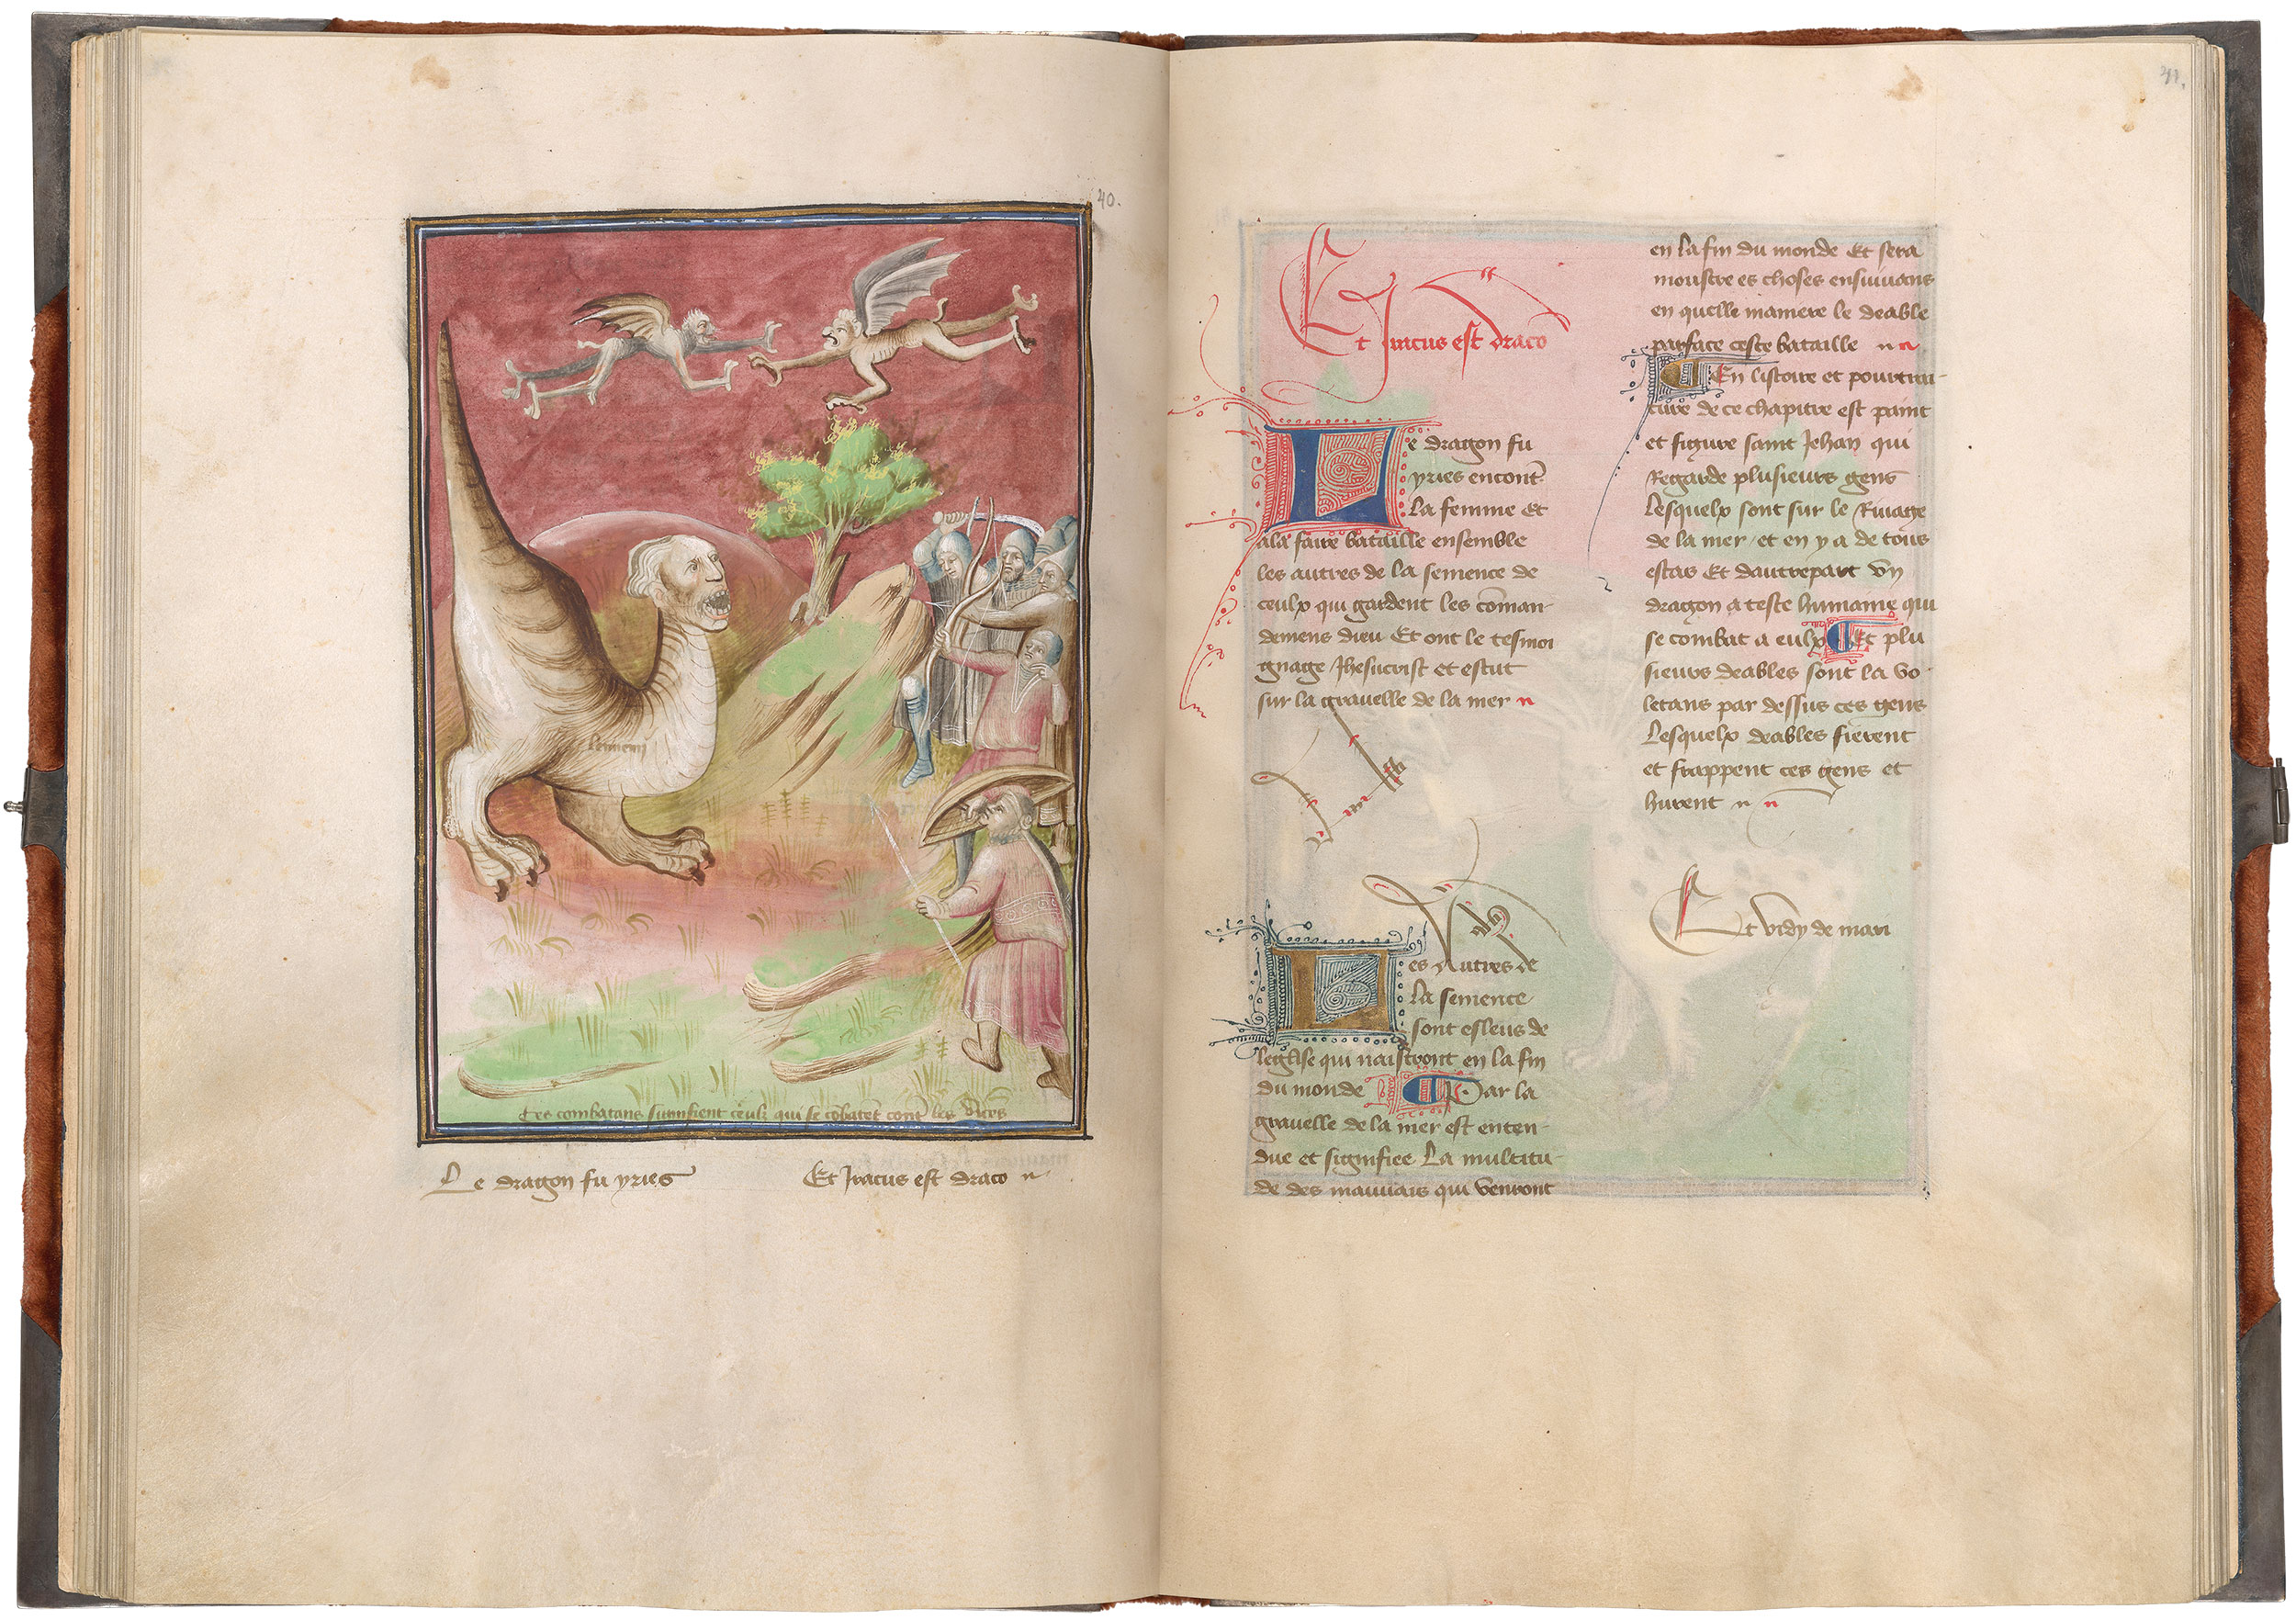 40.
Lennemi
Ces combatans signifient ceulx qui se cōbatēt contˀ les vices
Le dragon fu yries
Et Iratus est draco
41.
Et Iratus est draco
Le dragon fu
yries encontˀ
la femme Et
ala faire bataille ensemble
les autres de la semence de
ceulx qui gardent les cōman-
demens dieu Et ont le tesmoi
gnage Jhesucrist et estut
sur la gravelle de la mer
Les Autres de
la semence
sont esleus de
leglise qui naistront en la fin
du monde Par la
gravelle de la mer est enten-
due et signifiee La multitu-
de des mauvais qui venront
en la fin du monde Et sera
moustre es choses ensuivans
en quelle maniere le deable
parface ceste bataille
En listoire et pourtrai-
ture de ce chapitre est paint
et figure saint Jehan qui
Regarde plusieurs gens
Lesquelx sont sur le Rivage
de la mer et en y a de tous
estas Et dautrepart vn
dragon a teste humaine qui
se combat a eulx Et plu
sieurs deables sont la vo-
letans par dessus ces gens
Lesquelx deables fierent
et frappent ces gens et
hurent
Et vidy de mari